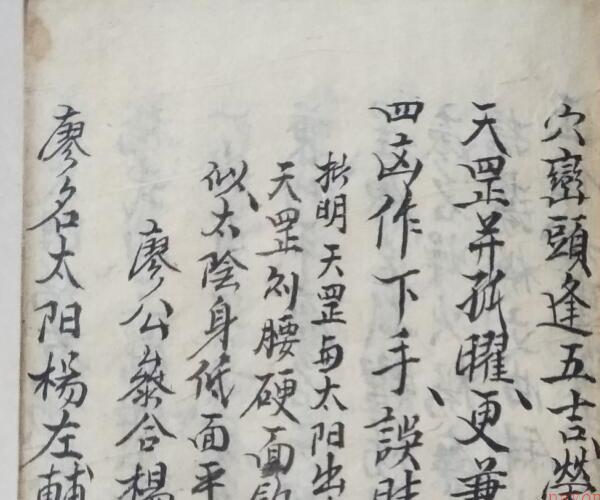 穴巒頭逢五吉
天罡并孤曜更兼
四凶作下手誤
指明天罡与太陽出
天罡刽腰硬面
似太陰身低面平
廖公叅合楊
廖名太陽楊左輔